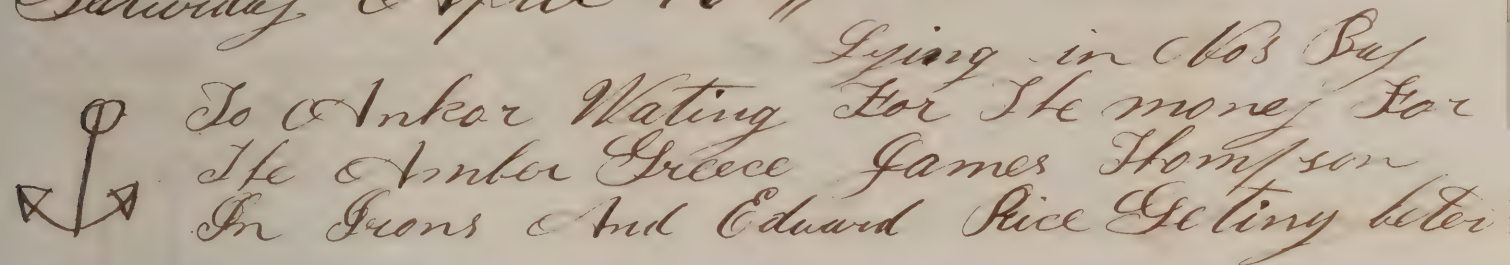 Saturday April
Lying in Nos Bay
To Ankor Wating For The money For
The Amber Greece James Thompson
In Irons And Edward Rice Geting beter